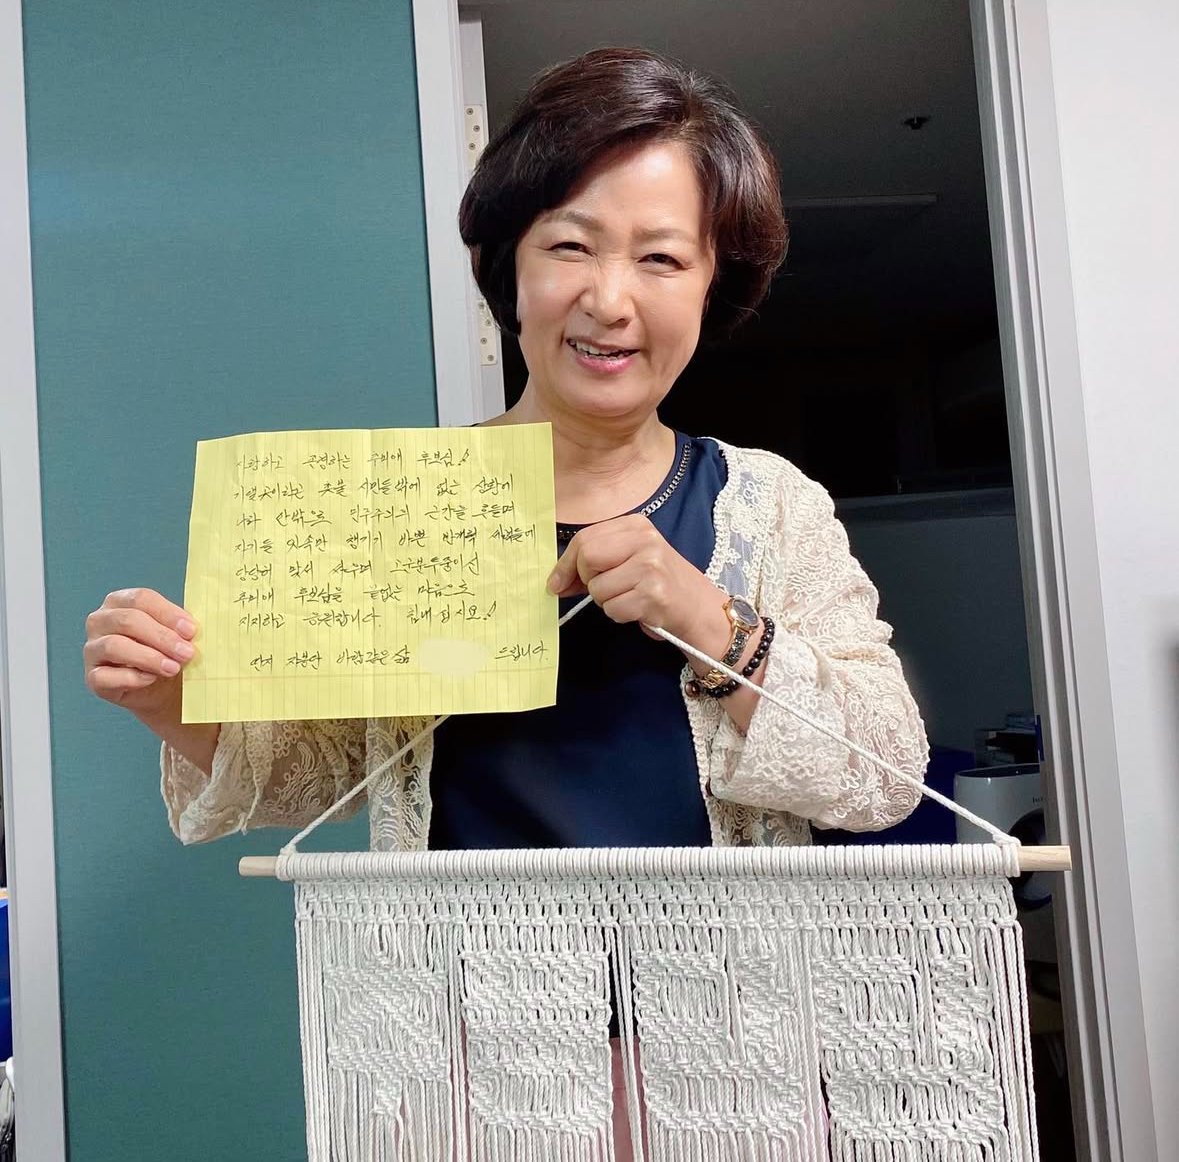 사랑하고 존경하는 추미애 후보님!!
기댈곳이라곤 촛불 시민들밖에 없는 상황에
나라 안밖으로 민주주의의 근간을 흔들며
자기들 잇속만 챙기기 바쁜 반개혁 세력들에
당당히 맞서 싸우며 고군분투중이신
추미애 후보님을 끝없는 마음으로
지지하고 응원합니다. 힘내십시요!!
딴지 자봉단 바람같은삶 드립니다.